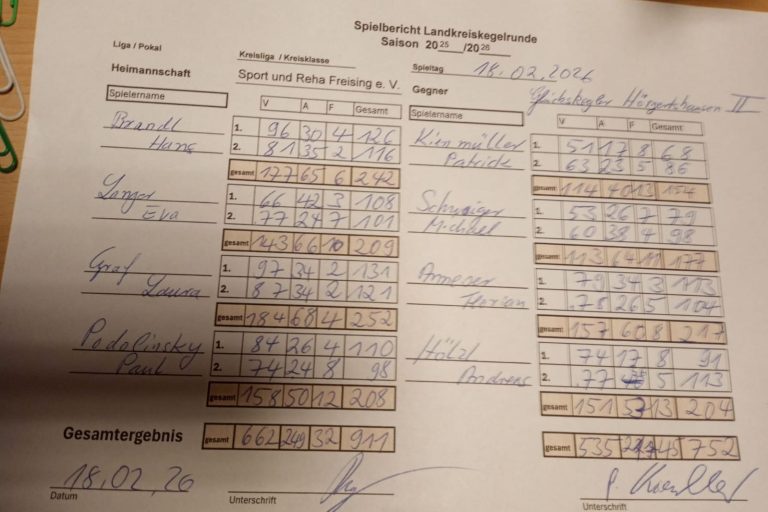 Spielbericht Landkreiskegelrunde
Saison 2025/2026
Liga / Pokal
Kreisliga / Kreisklasse
Spieltag 18.02.2026
Heimannschaft Sport und Reha Freising e. V.
Gegner Hörgertshausen II
Spielername V A F Gesamt
Spielername V A F Gesamt
Brandl 1. 96 30 4 126
Hans 2. 81 35 2 116
gesamt 177 65 6 242
Kienmüller 51 17 8 68
Patrick 2. 63 23 5 86
gesamt 114 40 13 154
Langer 1. 66 42 3 108
Eva 2. 77 24 7 101
gesamt 143 66 10 209
Schwaiger 1. 53 26 7 79
Michael 2. 60 38 4 98
gesamt 113 64 11 177
Graf 1. 97 34 2 131
Laura 2. 87 34 2 121
gesamt 184 68 4 252
1. 79 34 3 113
Florian 2. 78 26 5 104
gesamt 157 60 8 217
Podolinsky 1. 84 26 4 110
Paul 2. 74 24 8 98
gesamt 158 50 12 208
Hölzl 1. 74 17 8 91
Andreas 2. 77 5 113
gesamt 151 53 13 204
Gesamtergebnis gesamt 662 249 32 911
gesamt 535 217 45 752
18.02.26
Datum
Unterschrift
Unterschrift